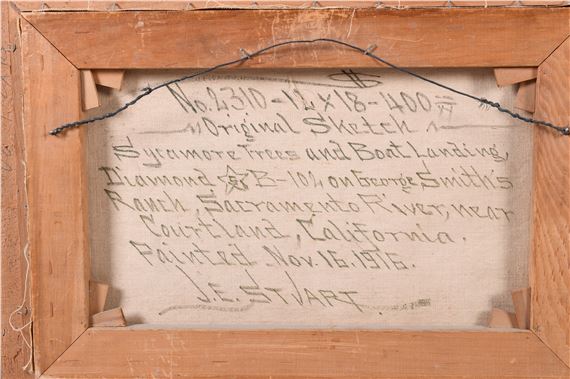 No. 2310 - 12 x 18 - 400
"Original Sketch"
Sycamore Trees and Boat Landing,
Diamond ☆ B-102 on George Smith's
Ranch, Sacramento River, near
Courtland, California.
Painted Nov. 16. 1916.
J. E. STUART.